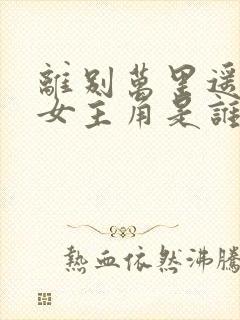 離別萬里遥
女主角是誰
熱血依然沸騰